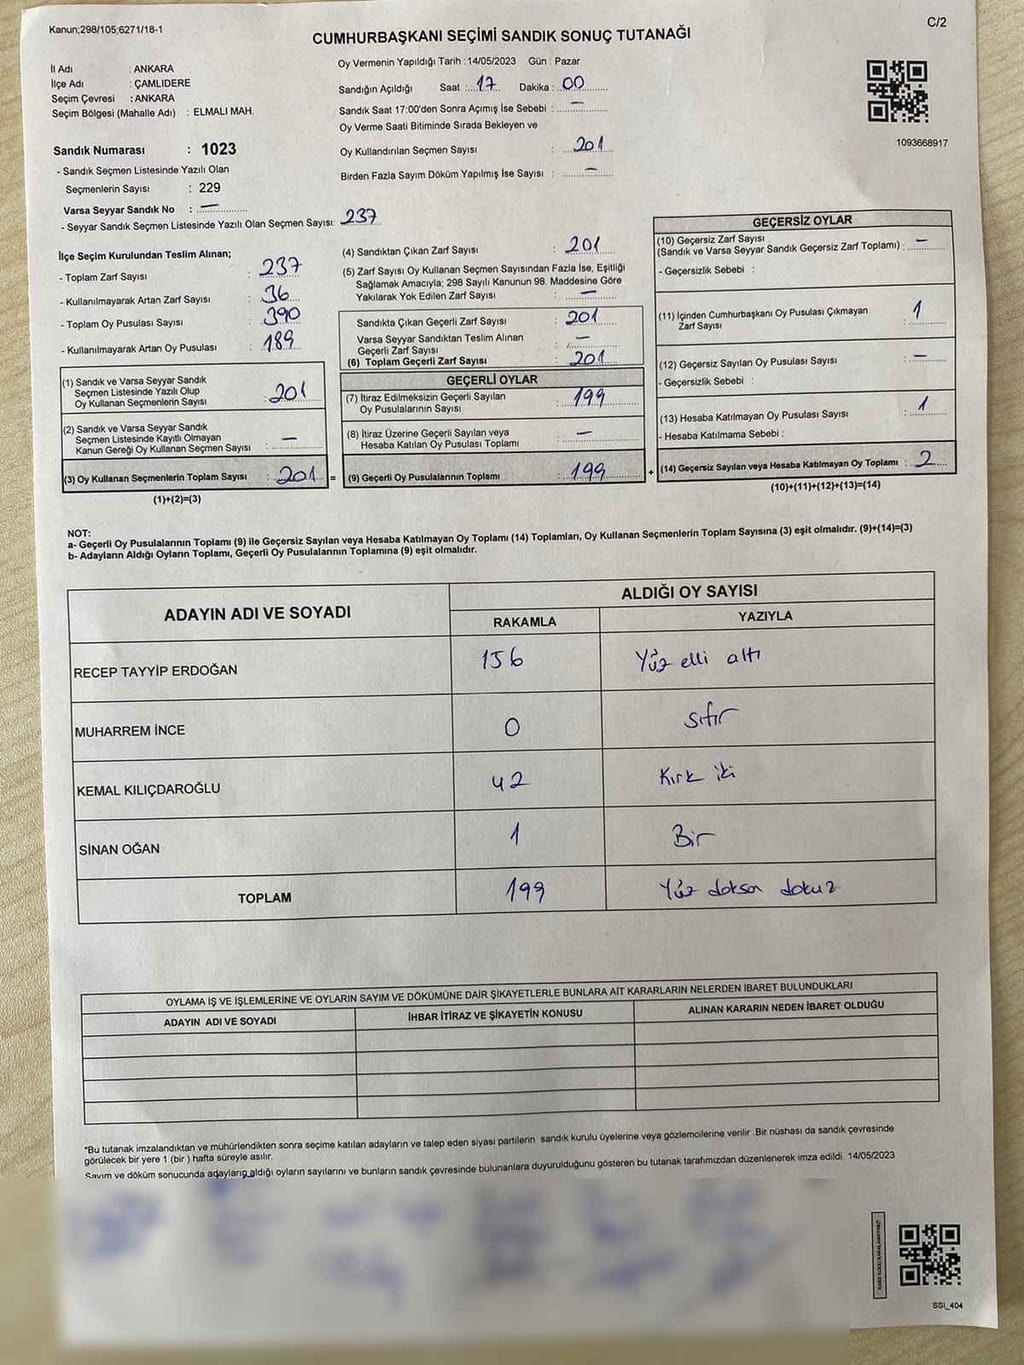 Kanun;298/105;6271/18-1
C/2
CUMHURBAŞKANI SEÇİMİ SANDIK SONUÇ TUTANAĞI
İl Adı : ANKARA
İlçe Adı : ÇAMLIDERE
Seçim Çevresi : ANKARA
Seçim Bölgesi (Mahalle Adı) : ELMALI MAH.
Oy Vermenin Yapıldığı Tarih : 14/05/2023 Gün : Pazar
Sandığın Açıldığı Saat : 17 Dakika : 00
Sandık Saat 17:00'den Sonra Açımış İse Sebebi : —
Oy Verme Saati Bitiminde Sırada Bekleyen ve
Oy Kullandırılan Seçmen Sayısı : 201
Birden Fazla Sayım Döküm Yapılmış İse Sayısı : —
1093668917
Sandık Numarası : 1023
- Sandık Seçmen Listesinde Yazılı Olan
Seçmenlerin Sayısı : 229
Varsa Seyyar Sandık No : —
- Seyyar Sandık Seçmen Listesinde Yazılı Olan Seçmen Sayısı: 237
İlçe Seçim Kurulundan Teslim Alınan;
- Toplam Zarf Sayısı : 237
- Kullanılmayarak Artan Zarf Sayısı : 36
- Toplam Oy Pusulası Sayısı : 390
- Kullanılmayarak Artan Oy Pusulası : 189
(1) Sandık ve Varsa Seyyar Sandık
Seçmen Listesinde Yazılı Olup
Oy Kullanan Seçmenlerin Sayısı : 201
(2) Sandık ve Varsa Seyyar Sandık
Seçmen Listesinde Kayıtlı Olmayan
Kanun Gereği Oy Kullanan Seçmen Sayısı : —
(3) Oy Kullanan Seçmenlerin Toplam Sayısı : 201 =
(1)+(2)=(3)
(4) Sandıktan Çıkan Zarf Sayısı : 201
(5) Zarf Sayısı Oy Kullanan Seçmen Sayısından Fazla İse, Eşitliği
Sağlamak Amacıyla; 298 Sayılı Kanunun 98. Maddesine Göre
Yakılarak Yok Edilen Zarf Sayısı : —
Sandıkta Çıkan Geçerli Zarf Sayısı : 201
Varsa Seyyar Sandıktan Teslim Alınan
Geçerli Zarf Sayısı : —
(6) Toplam Geçerli Zarf Sayısı : 201
GEÇERLİ OYLAR
(7) İtiraz Edilmeksizin Geçerli Sayılan
Oy Pusulalarının Sayısı : 199
(8) İtiraz Üzerine Geçerli Sayılan veya
Hesaba Katılan Oy Pusulası Toplamı : —
(9) Geçerli Oy Pusulalarının Toplamı : 199 +
GEÇERSİZ OYLAR
(10) Geçersiz Zarf Sayısı
(Sandık ve Varsa Seyyar Sandık Geçersiz Zarf Toplamı) : —
- Geçersizlik Sebebi :
(11) İçinden Cumhurbaşkanı Oy Pusulası Çıkmayan
Zarf Sayısı : 1
(12) Geçersiz Sayılan Oy Pusulası Sayısı : —
- Geçersizlik Sebebi :
(13) Hesaba Katılmayan Oy Pusulası Sayısı : 1
- Hesaba Katılmama Sebebi :
(14) Geçersiz Sayılan veya Hesaba Katılmayan Oy Toplamı : 2
(10)+(11)+(12)+(13)=(14)
NOT:
a- Geçerli Oy Pusulalarının Toplamı (9) ile Geçersiz Sayılan veya Hesaba Katılmayan Oy Toplamı (14) Toplamları, Oy Kullanan Seçmenlerin Toplam Sayısına (3) eşit olmalıdır. (9)+(14)=(3)
b- Adayların Aldığı Oyların Toplamı, Geçerli Oy Pusulalarının Toplamına (9) eşit olmalıdır.
ADAYIN ADI VE SOYADI
ALDIĞI OY SAYISI
RAKAMLA YAZIYLA
RECEP TAYYİP ERDOĞAN 156 Yüz elli altı
MUHARREM İNCE 0 Sıfır
KEMAL KILIÇDAROĞLU 42 Kırk iki
SİNAN OĞAN 1 Bir
TOPLAM 199 Yüz doksan dokuz
OYLAMA İŞ VE İŞLEMLERİNE VE OYLARIN SAYIM VE DÖKÜMÜNE DAİR ŞİKAYETLERLE BUNLARA AİT KARARLARIN NELERDEN İBARET BULUNDUKLARI
ADAYIN ADI VE SOYADI İHBAR İTİRAZ VE ŞİKAYETİN KONUSU ALINAN KARARIN NEDEN İBARET OLDUĞU
*Bu tutanak imzalandıktan ve mühürlendikten sonra seçime katılan adayların ve talep eden siyasi partilerin sandık kurulu üyelerine veya gözlemcilerine verilir. Bir nüshası da sandık çevresinde
görülecek bir yere 1 (bir ) hafta süreyle asılır.
Sayım ve döküm sonucunda adayların aldığı oyların sayılarını ve bunların sandık çevresinde bulunanlara duyurulduğunu gösteren bu tutanak tarafımızdan düzenlenerek imza edildi. 14/05/2023
SSI_404